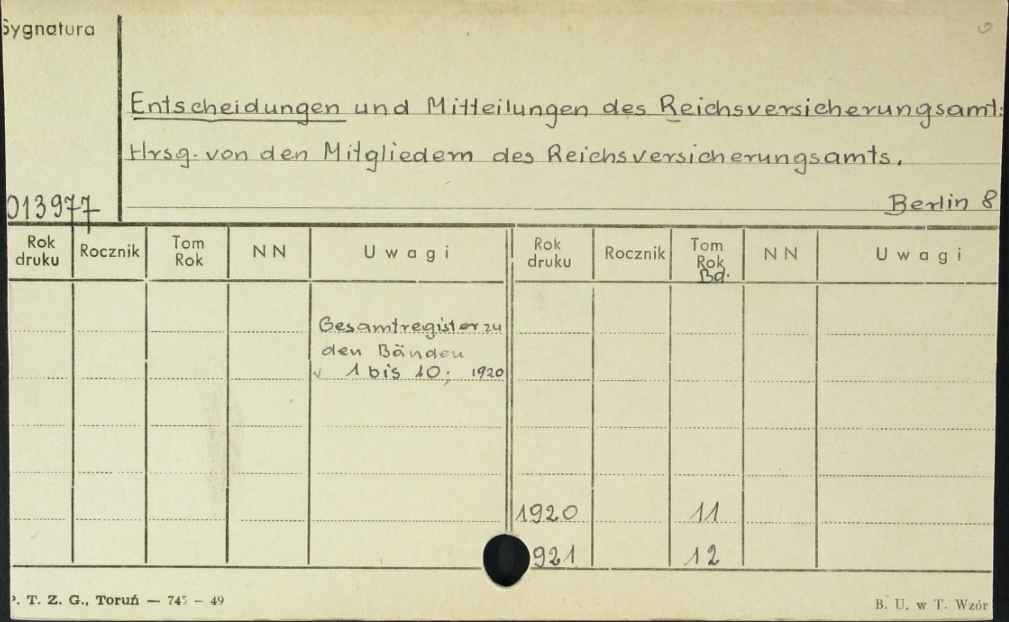 Sygnatura
Entscheidungen und Mitteilungen des Reichsversicherungsamt:
Hrsg. von den Mitgliedern des Reichsversicherungsamts.
013977
Berlin 8
Rok druku Rocznik Tom Rok NN Uwagi Rok druku Rocznik Tom Rok Bd. NN Uwagi
Gesamtregister zu
den Bänden
1 bis 10; 1920
1920 11
921 12
P. T. Z. G., Toruń — 745 — 49
B. U. w T. Wzór